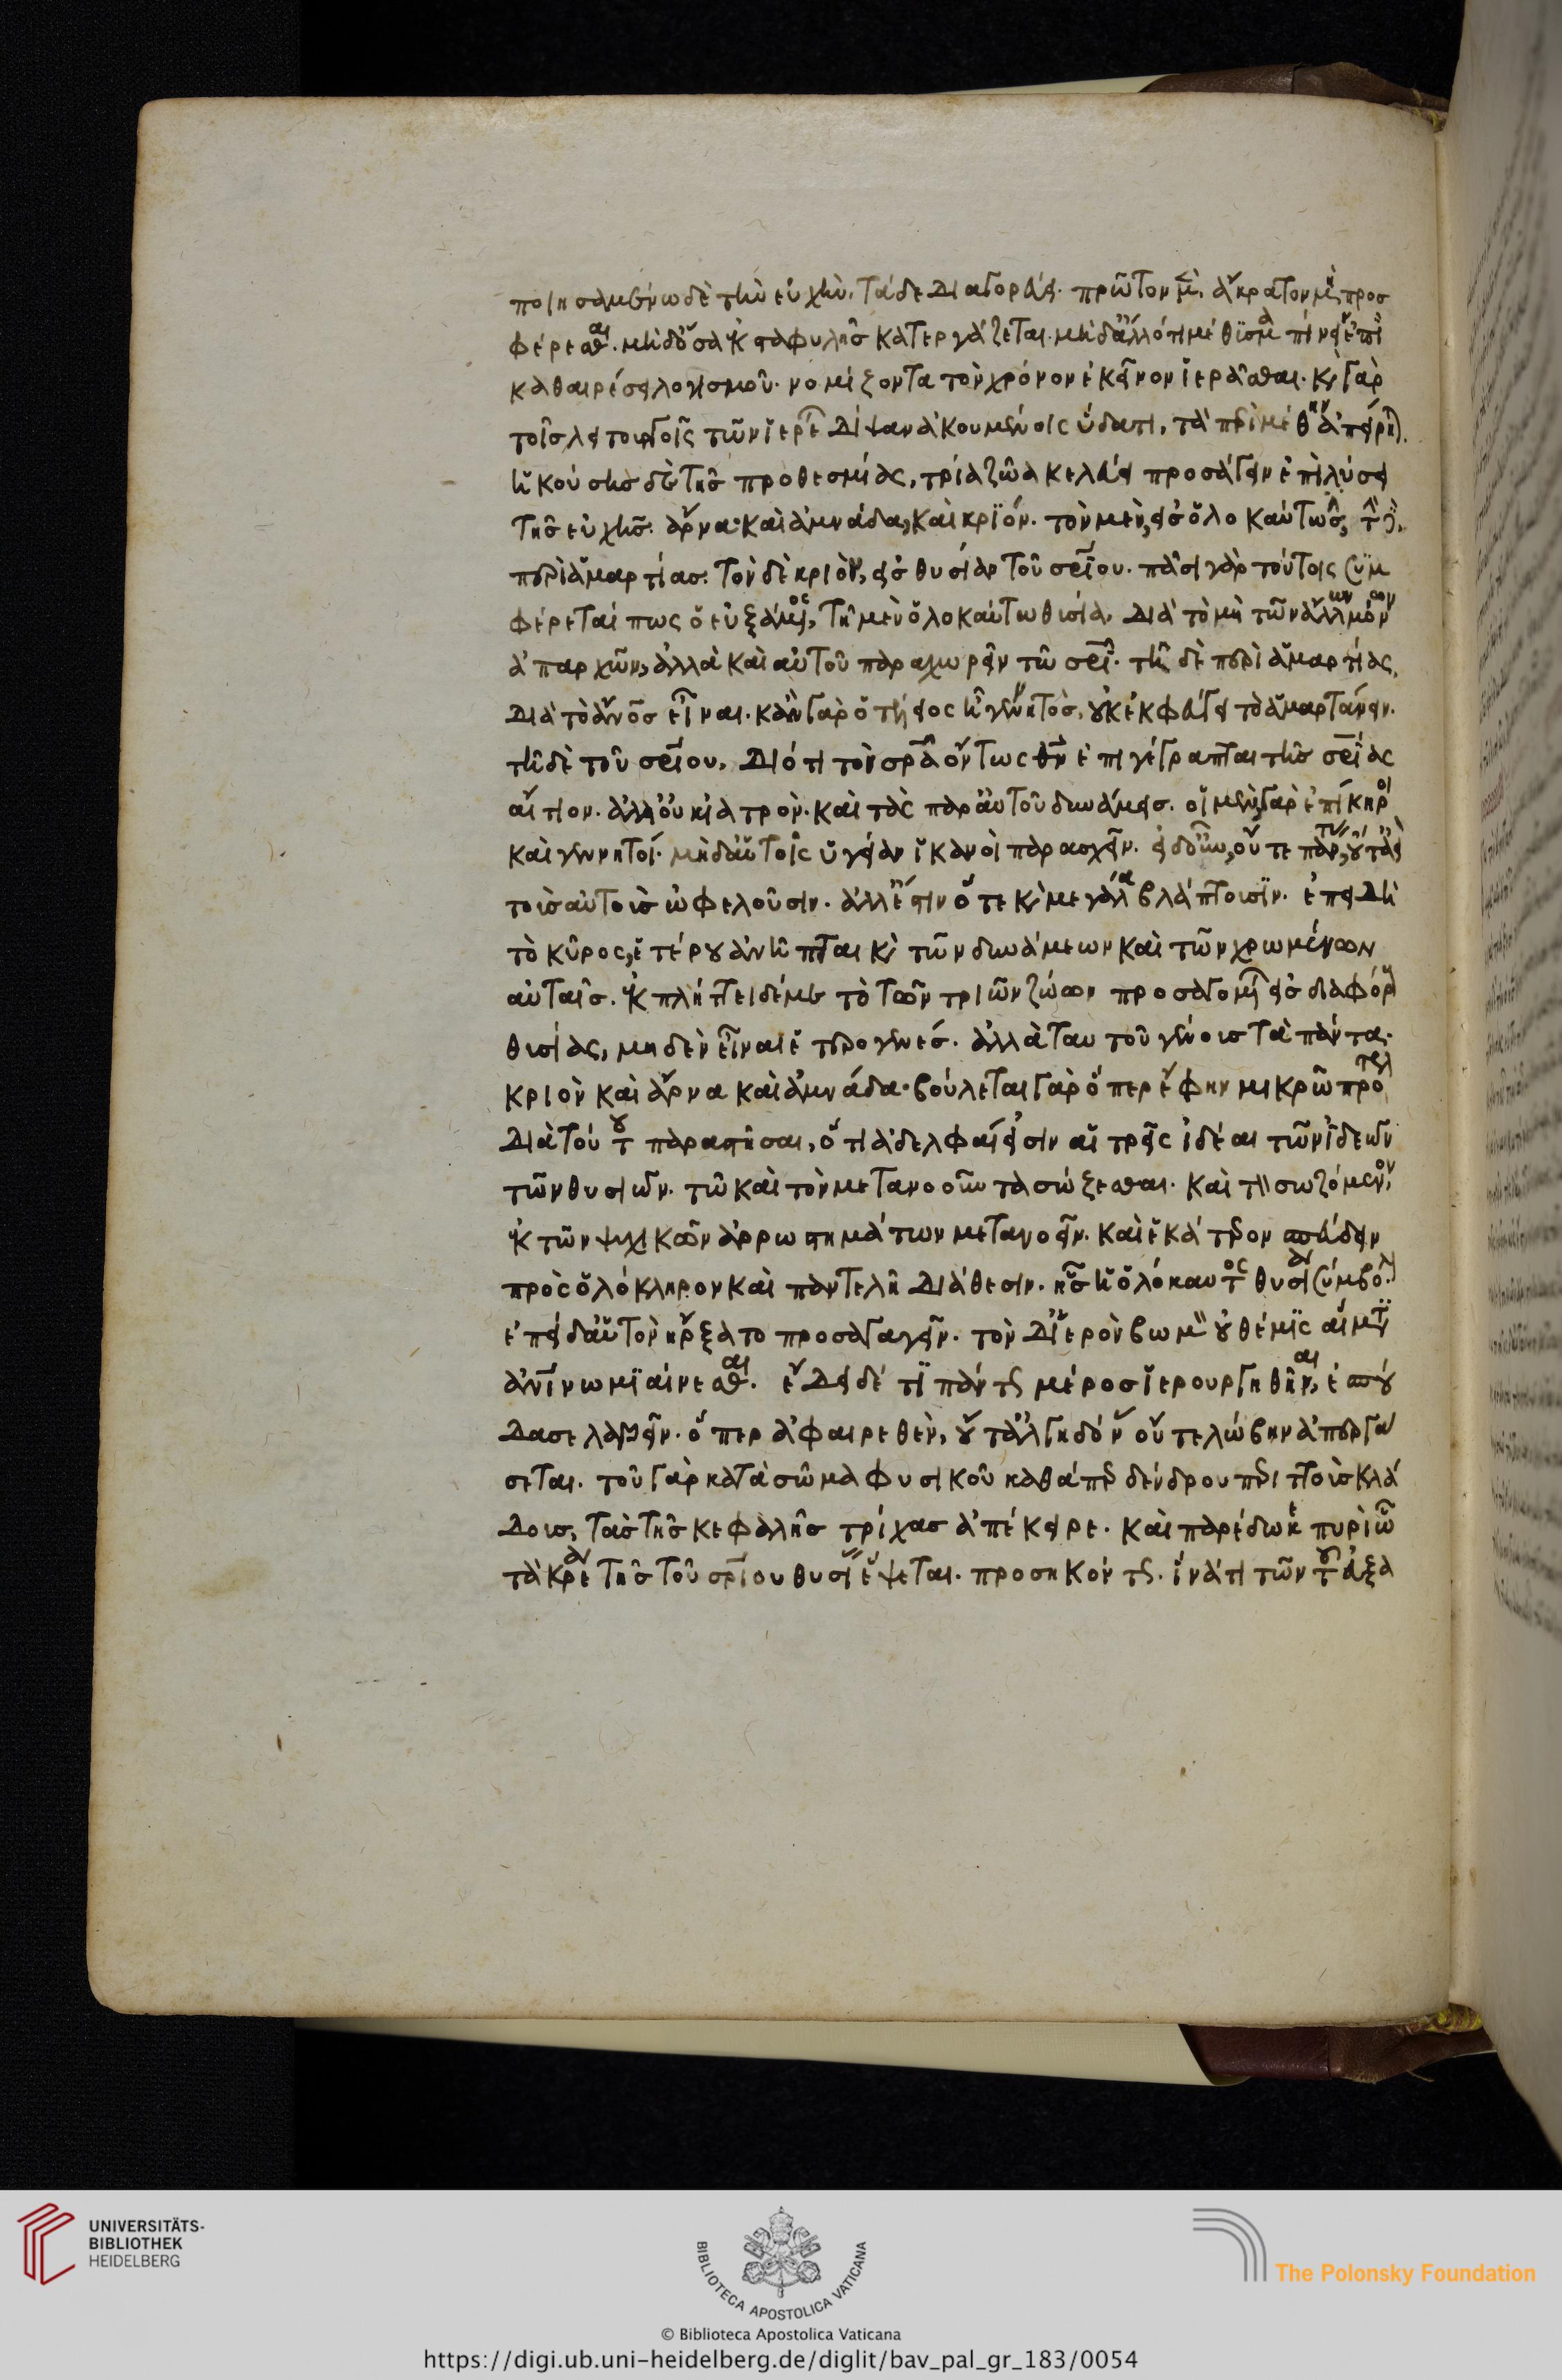 ποιησαμένω δὲ τὴν εὐχὴν, τάδε διαγορεύει. πρῶτον μὲν, ἄκρατον μὴ προσ
φέρεσθαι. μηδ' ὅσα ἐκ σταφυλῆς κατεργάζεται. μηδ' ἄλλό τι μέθυσμα πίνειν ἐπὶ
καθαιρέσει λογισμοῦ. νομίζοντα τὸν χρόνον ἐκεῖνον ἱερᾶσθαι. καὶ γὰρ
τοῖς λειτουργοῖς τῶν ἱερέων δίψαν ἀκουμένοις ὕδατι, τὰ περὶ μέθην ἀπείρηται.
ἡκούσης δὲ τῆς προθεσμίας, τρία ζῶα κελεύει προσάγειν ἐπὶ λύσει
τῆς εὐχῆς. ἄρνα καὶ ἀμνάδα, καὶ κριόν. τὸν μὲν, εἰς ὁλοκαύτωσιν, τὴν δὲ,
περὶ ἁμαρτίας. τὸν δὲ κριὸν, εἰς θυσίαν τοῦ σωτηρίου. πᾶσι γὰρ τούτοις ἐμ
φέρεταί πως ὁ εὐξάμενος, τῇ μὲν ὁλοκαύτω θυσία, διὰ τὸ μὴ τῶν ἄλλων μόνον
ἀπαρχῶν, ἀλλὰ καὶ αὑτοῦ παραχωρεῖν τῶ σωτῆρι. τῇ δὲ περὶ ἁμαρτίας,
διὰ τὸ ἄνθρωπος εἶναι. κἂν γὰρ ὁ τέλειος ἦ γεννητὸς, οὐκ ἐκφεύγει τὸ ἁμαρτάνειν.
τῇ δὲ τοῦ σωτηρίου, διότι τὸν σωτῆρα ὄντως θεὸν ἐπιγέγραπται τῆς σωτηρίας
αἴτιον. ἀλλ' οὐκ ἰατρὸν. καὶ τὰς παρ' αὐτοῦ δυνάμεις. οἱ μὲν γὰρ ἐπίκηροι
καὶ γεννητοὶ. μηδ' αὑτοῖς ὑγείαν ἱκανοὶ παρασχεῖν. αἱ δὲ οὔτε πάντα, οὔτ' ἀεὶ
τοὺς αὐτοὺς ὠφελοῦσιν. ἀλλ' ἔστιν ὅτε καὶ μεγάλα βλάπτουσιν. ἐπειδὴ
τὸ κῦρος, ἑτέρου ἀνῆπται καὶ τῶν δυνάμεων καὶ τῶν χρωμένων
αὐταῖς. ἐκπλήττει δέ με τὸ τῶν τριῶν ζώων προσαγομένων εἰς διαφόρους
θυσίας, μηδὲν εἶναι ἑτερογενές. ἀλλὰ ταυτοῦ γένους τὰ πάντα.
κριὸν καὶ ἄρνα καὶ ἀμνάδα. βούλεται γὰρ ὅπερ ἔφην μικρῶ πρότερον
διὰ τούτου παραστῆσαι, ὅτι ἀδελφαί εἰσιν αἱ τρεῖς ἰδέαι τῶν ἰδεῶν
τῶν θυσιῶν. τῶ καὶ τὸν μετανοοῦντα σώζεσθαι. καὶ τὸν σωζόμενον,
ἐκ τῶν ψυχικῶν ἀρρωστημάτων μετανοεῖν. καὶ ἑκάτερον σπεύδειν
πρὸς ὁλόκληρον καὶ παντελῆ διάθεσιν. ἧς ἡ ὁλόκαυτος θυσία σύμβολον.
ἐπεὶ δ' αὑτὸν ηὔξατο προσαγαγεῖν. τὸν δ' ἱερὸν βωμὸν οὐ θέμις αἵματι
ἀνθρωπίνω μιαίνεσθαι. ἔδει δέ τι πάντως μέρος ἱερουργηθῆναι, ἐσπού
δασε λαβεῖν. ὅπερ ἀφαιρεθὲν, οὔτ' ἀλγηδόνα οὔτε λώβην ἀπεργά
σεται. τοῦ γὰρ κατὰ σῶμα φυσικοῦ καθάπερ δένδρου περιττοὺς κλά
δους, τὰς τῆς κεφαλῆς τρίχας ἀπέκειρε. καὶ παρέδωκε πυρὶ ὧ
τὰ κρέα τῆς τοῦ σωτηρίου θυσίας ἕψεται. προσηκόντως. ἵνά τι τῶν τοῦ εὐξα
UNIVERSITÄTS-
BIBLIOTHEK
HEIDELBERG
BIBLIOTECA APOSTOLICA VATICANA
The Polonsky Foundation
© Biblioteca Apostolica Vaticana
https://digi.ub.uni-heidelberg.de/diglit/bav_pal_gr_183/0054